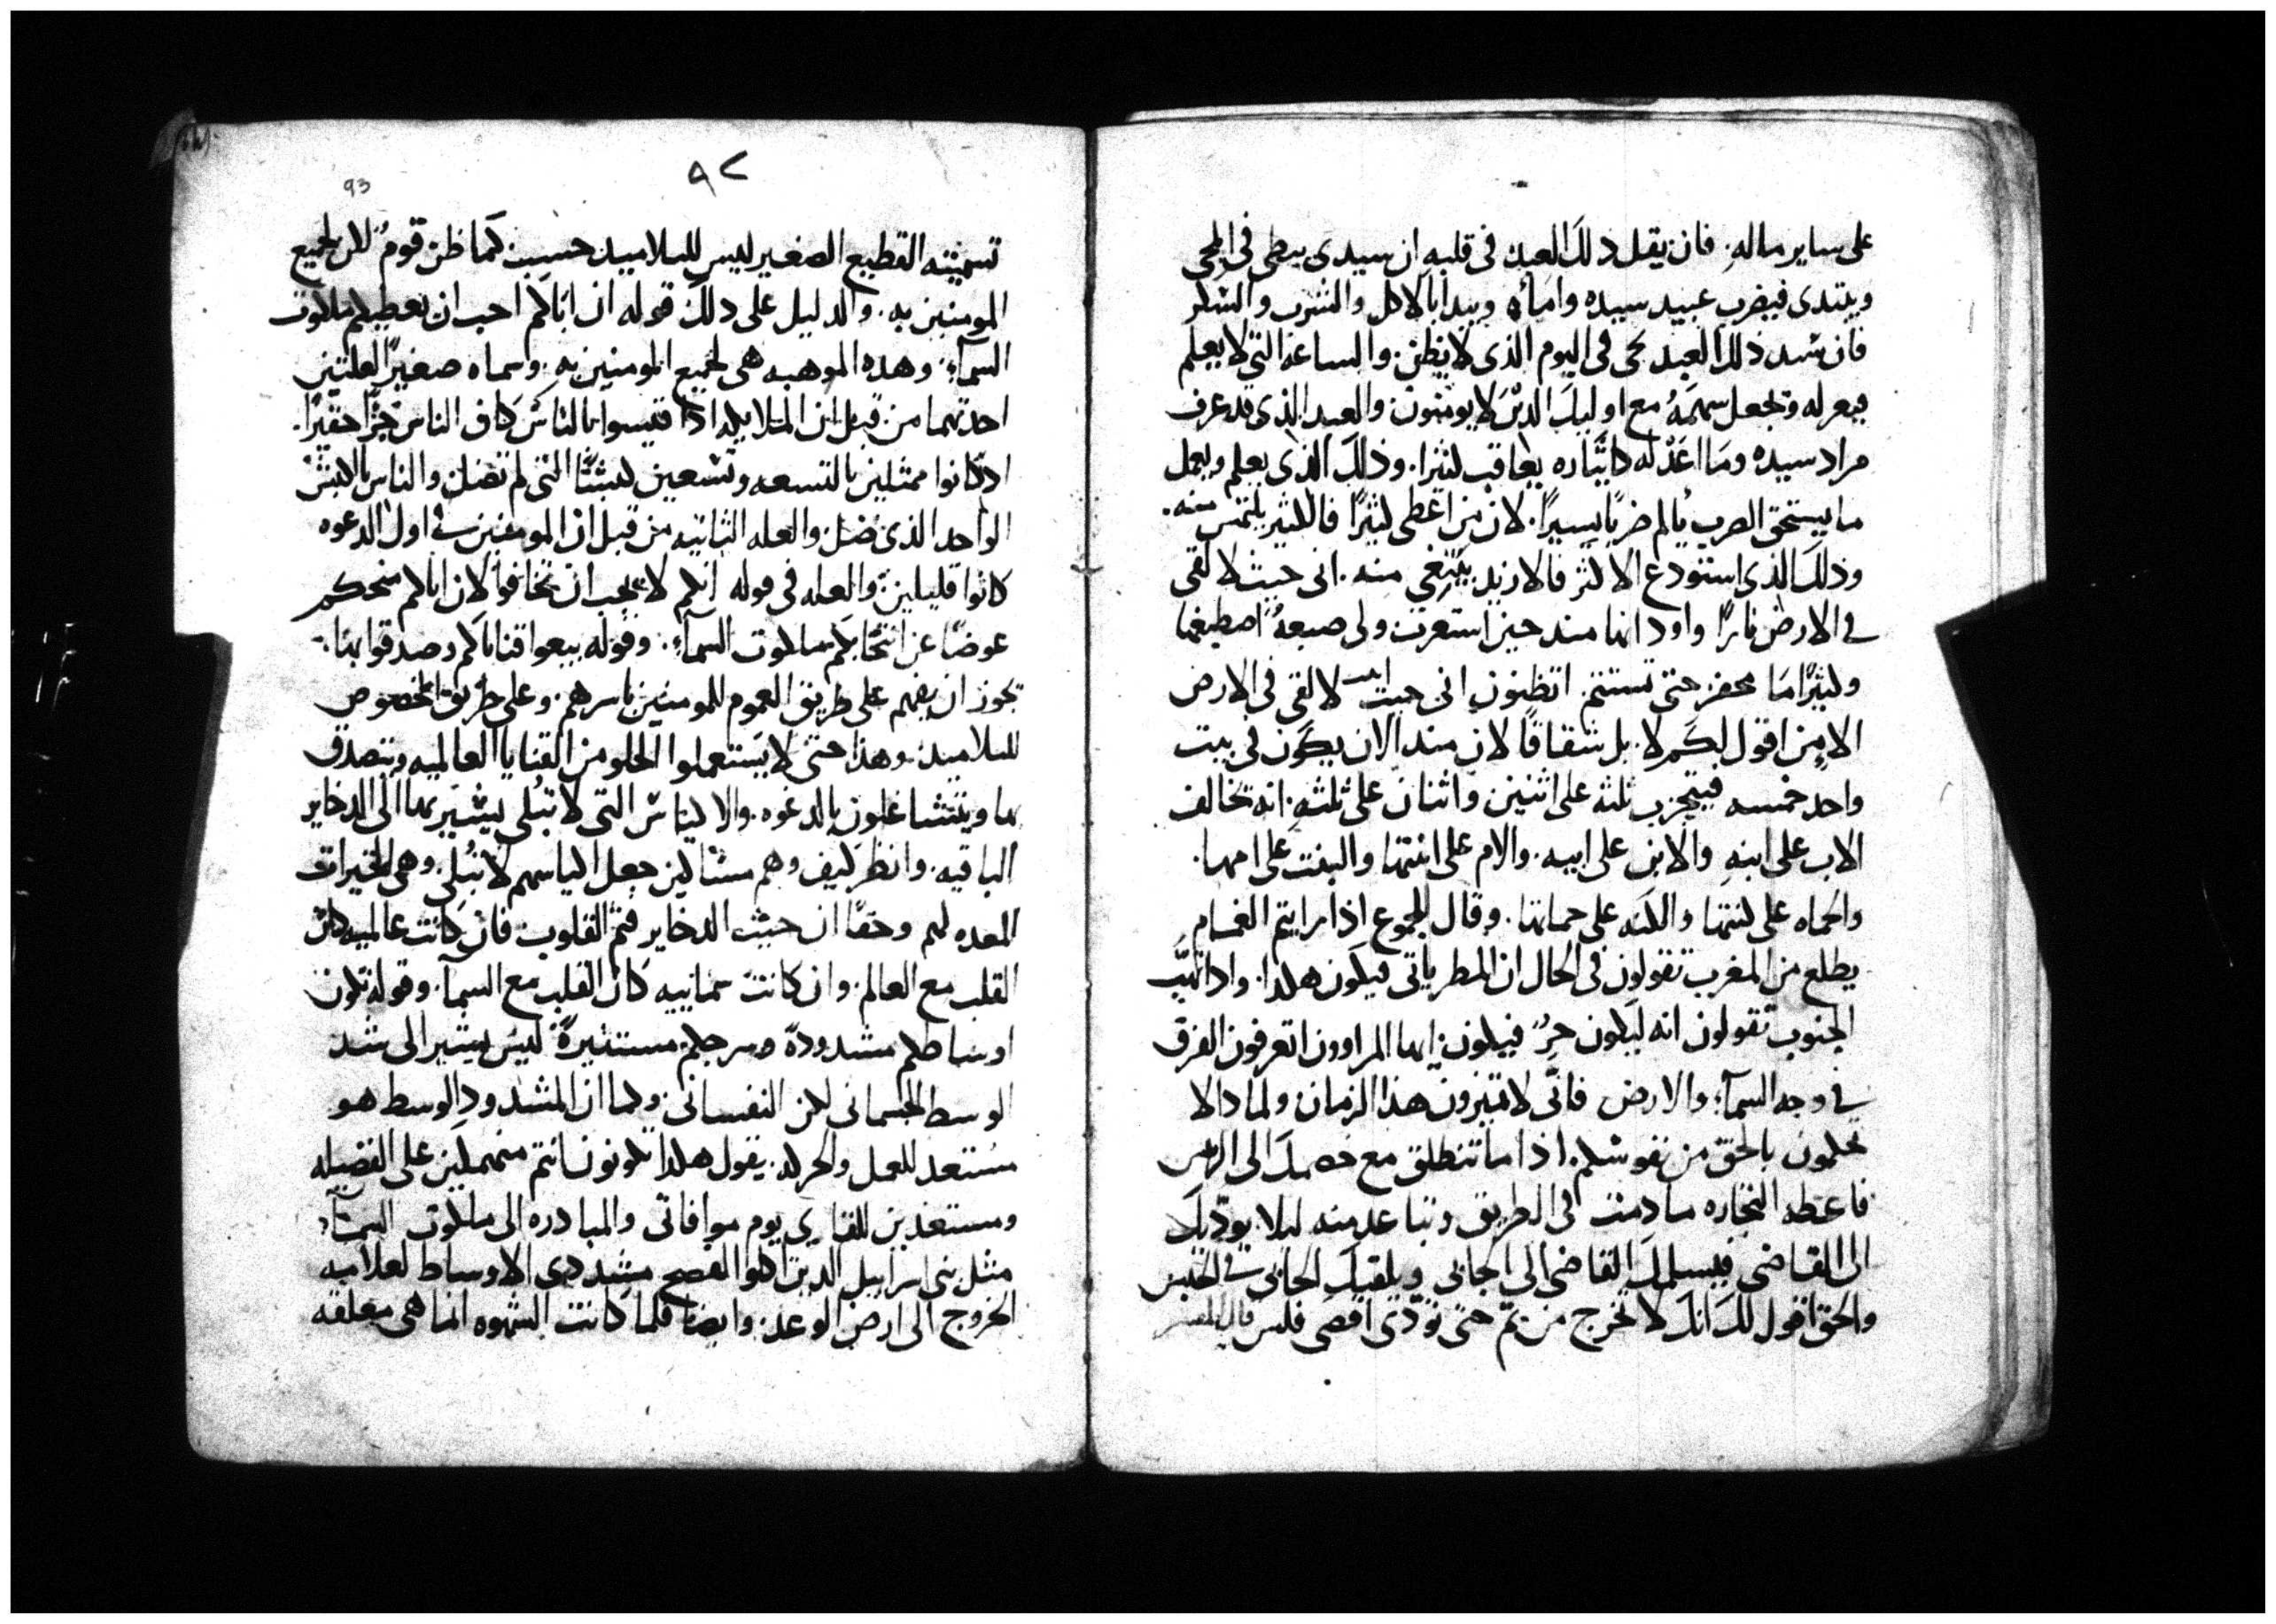 على ساير ماله. فان يقل ذلك العبد فى قلبه ان سيدى يبطى فى المجى
ويبتدى فيضرب عبيد سيده واماه ويبدا بالاكل والشرب والسكر
فان سيد ذلك العبد يجى فى اليوم الذى لا يظن. والساعة التى لا يعلم
ويجعل سهمه مع اوليك الدين لا يومنون. والعبد الذى قد عرف
مراد سيده وما اعد له كايثاره يعاقب كثيرا. وذلك الذى يعلم ويعمل
ما يستحق الضرب يالم ضربا يسيرا. لان من اعطى كثيرا فالكثير يلتمس منه.
وذلك الذى استودع الاكثر فالازيد يبتغى منه. انى جيت لالقى
فى الارض نارا واود انها منذ حين استعرت ولى صبغه اصطبغها
وكثيرا ما محفز حتى تستتم. اتظنون انى جيت لالقى فى الارض
الامن اقول لكم لا. بل شقاقا لان مند الان يكون فى بيت
واحد خمسه فيتحزب ثلثه على اثنين واثنان على ثلثه. انه يخالف
الاب على ابنه والابن على ابيه. والام على ابنتها والبنت على امها.
والحماه على كنتها والكنه على حماتها. وقال للجموع اذا رايتم الغمام
يطلع من المغرب تقولون فى الحال ان المطر ياتى فيكون هكدا. وادا تهب
الجنوب تقولون انه ليكون حر فيكون. ايها المراوون اتعرفون الفرق
فى وجه السمآء والارض فانى لا تميزون هذا الزمان ولما دا لا
تحكمون بالحق من نفوسكم. اذا ما تنطلق مع خصمك الى الريس
فاعطه التجاره ما دمت فى الطريق وتباعد منه ليلا يوديك
الى القاضى فيسلمك القاضى الى الجابى ويلقيك الجابى فى الحبس
والحق اقول لك انك لا تخرج من تم حتى تودى اقصى فلس قال المفسر
٩٢
93
تسميته القطيع الصغير ليس للتلاميد حسب كما ظن قوم لكن لجميع
المومنين به. والدليل على دلك قوله ان اباكم احب ان يعطيكم ملكوت
السمآء. وهده الموهبه هى لجميع المومنين به. وسماه صغيرا لعلتين
احدتهما من قبل ان الملايكه ادا قيسوا بالناس كاف الناس جزا حقيرا.
اد كانوا ممثلين بالتسعه وتسعين كبشا التى لم تضل والناس بالكبش
الواحد الذى ضل والعله الثانيه من قبل ان المومنين فى اول الدعوه
كانوا قليلين. والعله فى قوله انكم لا يجب ان تخافوا لان اباكم منحكم
عوضا عن اتخابكم ملكوت السمآء. وقوله بيعوا قناياكم وصدقوا بها.
يجوز ان يفهم على طريق العموم للمومنين باسرهم. وعلى طريق الخصوص
للتلاميد. وهذا حتى لا يستعملوا الحلو من القنايا العالميه ويتصدق
بها ويتشاغلون بالدعوه. والاكياس التى لا تبلى يشير بها الى الدخاير
الباقيه. وانظر كيف وهم مساكين جعل اكياسهم لا تبلى. وهى الخيرات
المعده لهم وحقا ان حيث الدخاير فثم القلوب فان كانت عالميه كان
القلب مع العالم. وان كانت سماييه كان القلب مع السمآ. وقوله تكون
اوساطكم مشدودة وسرجكم مستنيرة ليس يشير الى شد
الوسط الجسمانى لكن النفسانى. وكما ان المشدود الوسط هو
مستعد للعمل والحركه. يقول هكدا تكونون انتم متمهلين على الفضيله
ومستعدين للقاى يوم موافاتى والمبادره الى ملكوت السمآء
مثل بنى اسراييل الدين اكلوا الفصح مشددى الاوساط لعلامه
الخروج الى ارض الوعد. وايضا فلما كانت الشهوه انما هى معلقه